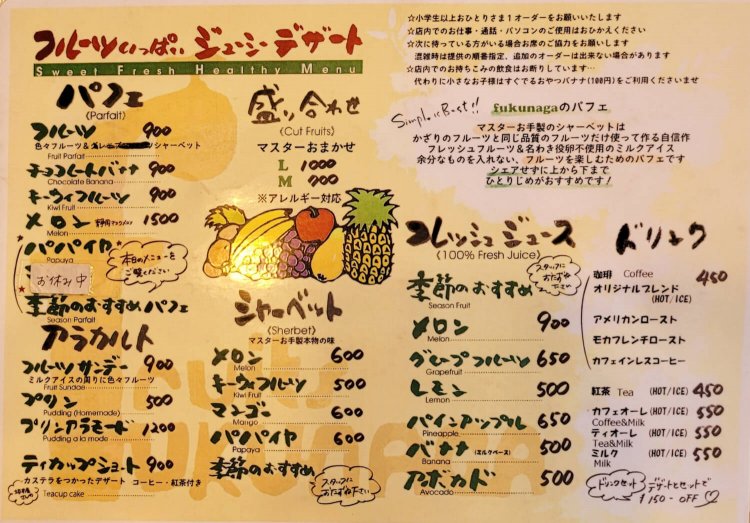 フルーツいっぱい ジューシーデザート
Sweet Fresh Healthy Menu
☆小学生以上おひとりさま1オーダーをお願いいたします
☆店内でのお仕事・通話・パソコンのご使用はおひかえください
☆次に待っている方がいる場合お席のご協力をお願いします
混雑時は提供の順番指定、追加のオーダーは出来ない場合があります
☆店内でのお持ちこみの飲食はお断りしています…
代わりに小さなお子様はすぐでるおやつバナナ(100円)をご利用くださいませ
パフェ
(Parfait)
フルーツ 900
色々フルーツ&
シャーベット
Fruit Parfait
チョコレートバナナ 900
Chocolate Banana
キーウィフルーツ 900
Kiwi Fruit
メロン 1500
Melon
パパイヤ
Papaya
本日のメニューをご覧ください
お休み中
季節のおすすめ パフェ
Season Parfait
アラカルト
フルーツサンデー 900
ミルクアイスの周りに色々フルーツ
Fruit Sundae
プリン 500
Pudding (Homemade)
プリンアラモード 1200
Pudding a la mode
ティカップショート 900
カステラをつかったデザート コーヒー・紅茶付き
Teacup cake
盛り合わせ
(Cut Fruits)
マスターおまかせ
L 1000
M 700
※アレルギー対応
シャーベット
(Sherbet)
マスターお手製本物の味
メロン 600
Melon
キーウィフルーツ 600
Kiwi Fruit
マンゴー 600
Mango
パパイヤ 600
Papaya
季節のおすすめ
スタッフにおたずね下さい
Simple is Best!!
fukunagaのパフェ
マスターお手製のシャーベットは
かざりのフルーツと同じ品質のフルーツだけ使って作る自信作
フレッシュフルーツ&名わき役卵不使用のミルクアイス
余分なものを入れない、フルーツを楽しむためのパフェです
シェアせずに上から下まで
ひとりじめがおすすめです!
フレッシュジュース
(100% Fresh Juice)
スタッフにおたずね下さい
季節のおすすめ
Season Fruit
メロン 900
Melon
グレープフルーツ 650
Grapefruit
レモン 500
Lemon
パインアップル 650
Pineapple
バナナ (ミルクベース) 500
Banana
アボカド 500
Avocado
ドリンク
珈琲 Coffee 450
オリジナルブレンド
(HOT/ICE)
アメリカンロースト
モカフレンチロースト
カフェインレスコーヒー
紅茶 Tea (HOT/ICE) 450
カフェオーレ (HOT/ICE) 550
Coffee&Milk
ティオーレ (HOT/ICE) 550
Tea&Milk
ミルク (HOT/ICE) 550
Milk
ドリンクセット
デザートとセットで
¥150-OFF♡